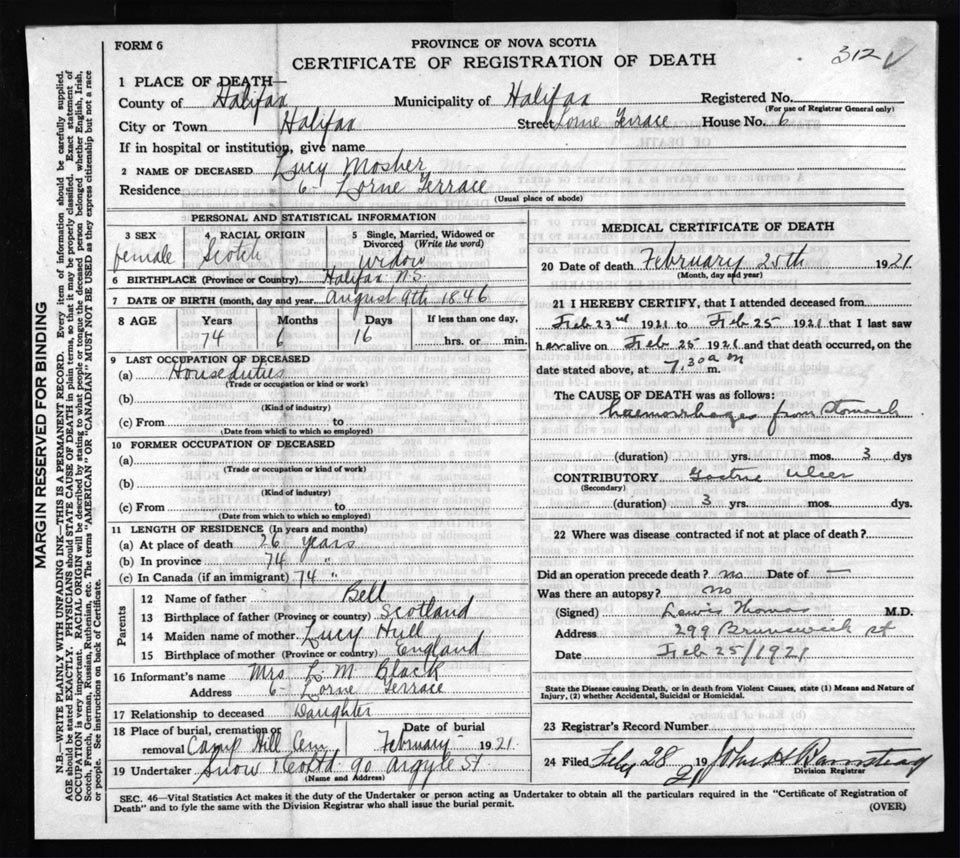 FORM 6
PROVINCE OF NOVA SCOTIA
CERTIFICATE OF REGISTRATION OF DEATH
312 ✓
1 PLACE OF DEATH—
County of Halifax Municipality of Halifax Registered No.
(For use of Registrar General only)
City or Town Halifax Street Lorne Terrace House No. 6
If in hospital or institution, give name
2 NAME OF DECEASED Lucy Mosher
Residence 6 - Lorne Terrace
(Usual place of abode)
PERSONAL AND STATISTICAL INFORMATION
3 SEX female
4 RACIAL ORIGIN Scotch
5 Single, Married, Widowed or Divorced (Write the word) widow
6 BIRTHPLACE (Province or Country) Halifax N.S.
7 DATE OF BIRTH (month, day and year) August 9th 1846
8 AGE Years 74 Months 6 Days 16 If less than one day, hrs. or min.
9 LAST OCCUPATION OF DECEASED
(a) Houseduties
(Trade or occupation or kind of work)
(b)
(Kind of industry)
(c) From to
(Date from which to which so employed)
10 FORMER OCCUPATION OF DECEASED
(a)
(Trade or occupation or kind of work)
(b)
(Kind of industry)
(c) From to
(Date from which to which so employed)
11 LENGTH OF RESIDENCE (In years and months)
(a) At place of death 26 years
(b) In province 74 "
(c) In Canada (if an immigrant) 74 "
Parents
12 Name of father Bell
13 Birthplace of father (Province or country) Scotland
14 Maiden name of mother Lucy Hull
15 Birthplace of mother (Province or country) England
16 Informant's name Mrs L. M Black
Address 6 - Lorne Terrace
17 Relationship to deceased Daughter
18 Place of burial, cremation or removal Camp Hill Cem Date of burial February 1921
19 Undertaker Snow & Co Ltd. 90 Argyle St.
(Name and Address)
MEDICAL CERTIFICATE OF DEATH
20 Date of death February 25th 1921
(Month, day and year)
21 I HEREBY CERTIFY, that I attended deceased from
Feb 23rd 1921 to Feb 25 1921 that I last saw
her alive on Feb 25 1921 and that death occurred, on the
date stated above, at 7.30 am m.
The CAUSE OF DEATH was as follows:
haemorrhages from stomach
(duration) yrs. mos. 3 dys
CONTRIBUTORY Gastric ulcer
(Secondary)
(duration) 3 yrs. mos. dys.
22 Where was disease contracted if not at place of death?
Did an operation precede death? no Date of —
Was there an autopsy? no
(Signed) Lewis Thomas M.D.
Address 299 Brunswick st
Date Feb 25/1921
State the Disease causing Death, or in death from Violent Causes, state (1) Means and Nature of
Injury, (2) whether Accidental, Suicidal or Homicidal.
23 Registrar's Record Number
24 Filed Feby 28 1921 John A Barnstead
Division Registrar
SEC. 46—Vital Statistics Act makes it the duty of the Undertaker or person acting as Undertaker to obtain all the particulars required in the "Certificate of Registration of
Death" and to fyle the same with the Division Registrar who shall issue the burial permit.
(OVER)
MARGIN RESERVED FOR BINDING
N.B.—WRITE PLAINLY WITH UNFADING INK—THIS IS A PERMANENT RECORD. Every item of information should be carefully supplied.
AGE should be stated EXACTLY. PHYSICIANS should STATE CAUSE OF DEATH in plain terms, so that it may be properly classified. Exact statement of
OCCUPATION is very important. RACIAL ORIGIN will be described by stating to what people or tongue the deceased person belonged whether English, Irish,
Scotch, French, German, Russian, Ruthenian, etc. The terms "AMERICAN" OR "CANADIAN" MUST NOT BE USED as they express citizenship but not a race
or people. See instructions on back of Certificate.